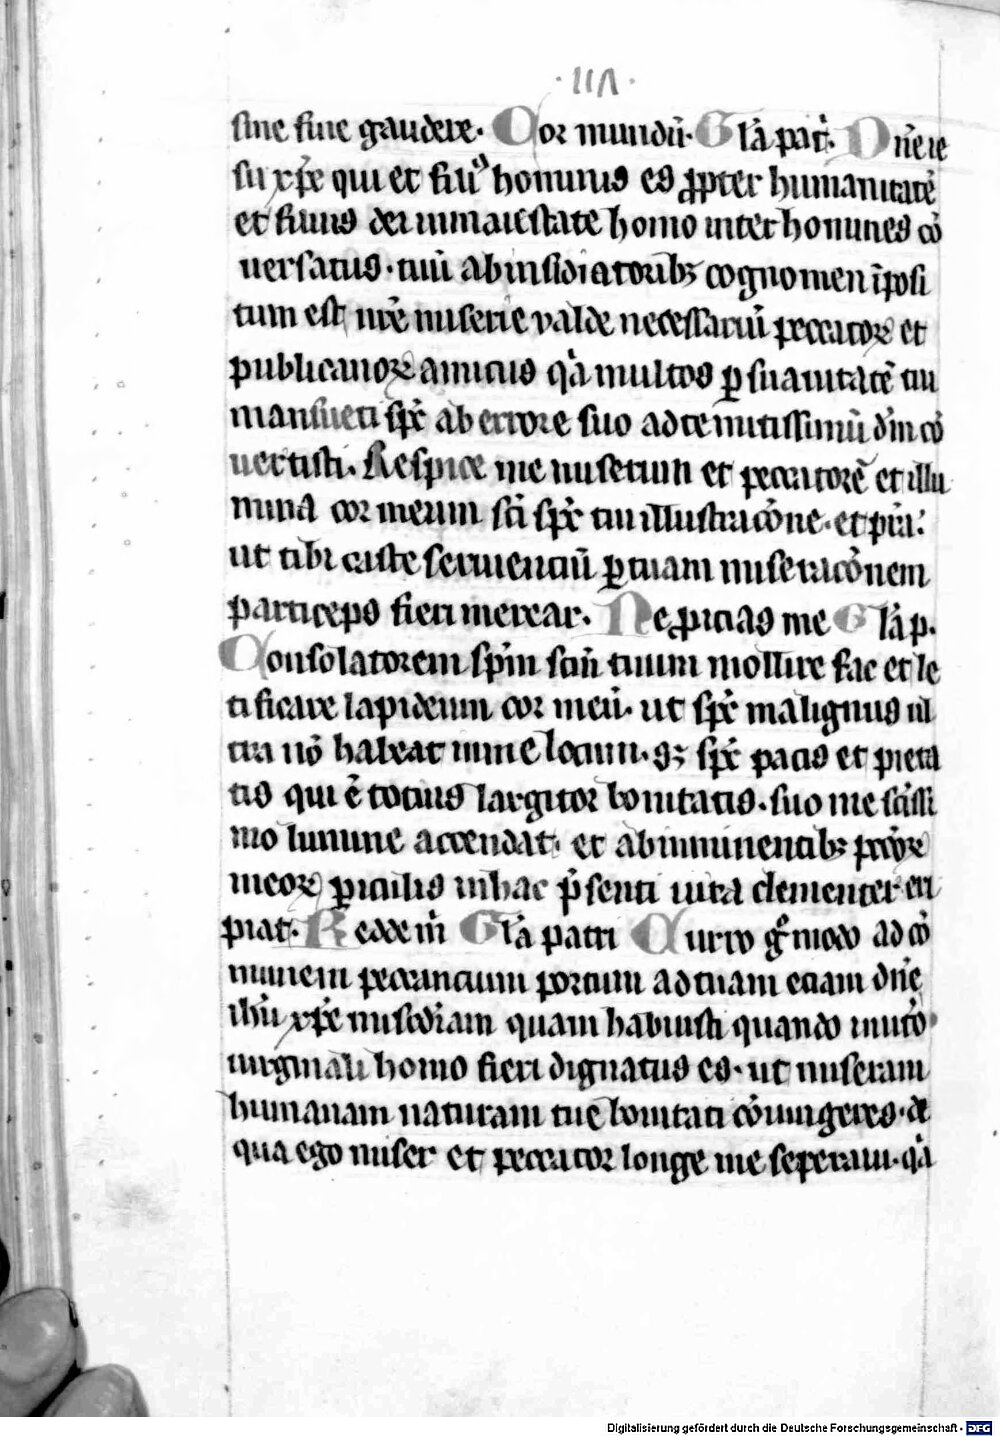 ·IIΛ·
sine fine gaudere. Cor mundū. Gl̄a pat̄. Dn̄e ie
su xp̄e qui et filiꝰ hominis es ꝓpter humanitatē
et filius dei in maiestate homo inter homines cō
uersatus. tuū ab insidiatoribꝫ cognomen īposi
tum est nr̄e miserie valde necessariū peccatoꝝ et
publicanoꝝ amicus q̄a multos ꝑ suauitatē tui
mansueti sp̄c ab errore suo ad te mitissimū dn̄m cō
uertisti. Respice me miserum et peccatorē et illu
mina cor meum sc̄i sp̄c tui illustracōne. et pr̄ia.
ut tibi caste seruienciū ꝑ tuam miseracōnem
particeps fieri merear. Ne ꝓicias me Gl̄a p.
Consolatorem sp̄m sc̄m tuum mollire fac et le
tificare lapideum cor meū. ut sp̄c malignus ul
tra nō habeat in me locum. sꝫ sp̄c pacis et pieta
tis qui ē tocius largitor bonitatis. suo me sc̄issi
mo lumine accendat. et ab imminentibꝫ pccōꝝ
meoꝝ ꝑiculis in hac p̄senti uita clementer eri
piat. Redde m̄ Gl̄a patri Curro gͦ modo ad cō
munem peccancium portum ad tuam etiam dn̄e
ih̄u xp̄e miscd̄iam quam habuisti quando in ut̄o
uirginali homo fieri dignatus es. ut miseram
humanam naturam tue bonitati cōiungeres. de
qua ego miser et peccator longe me seperaui. q̄a
Digitalisierung gefördert durch die Deutsche Forschungsgemeinschaft - DFG